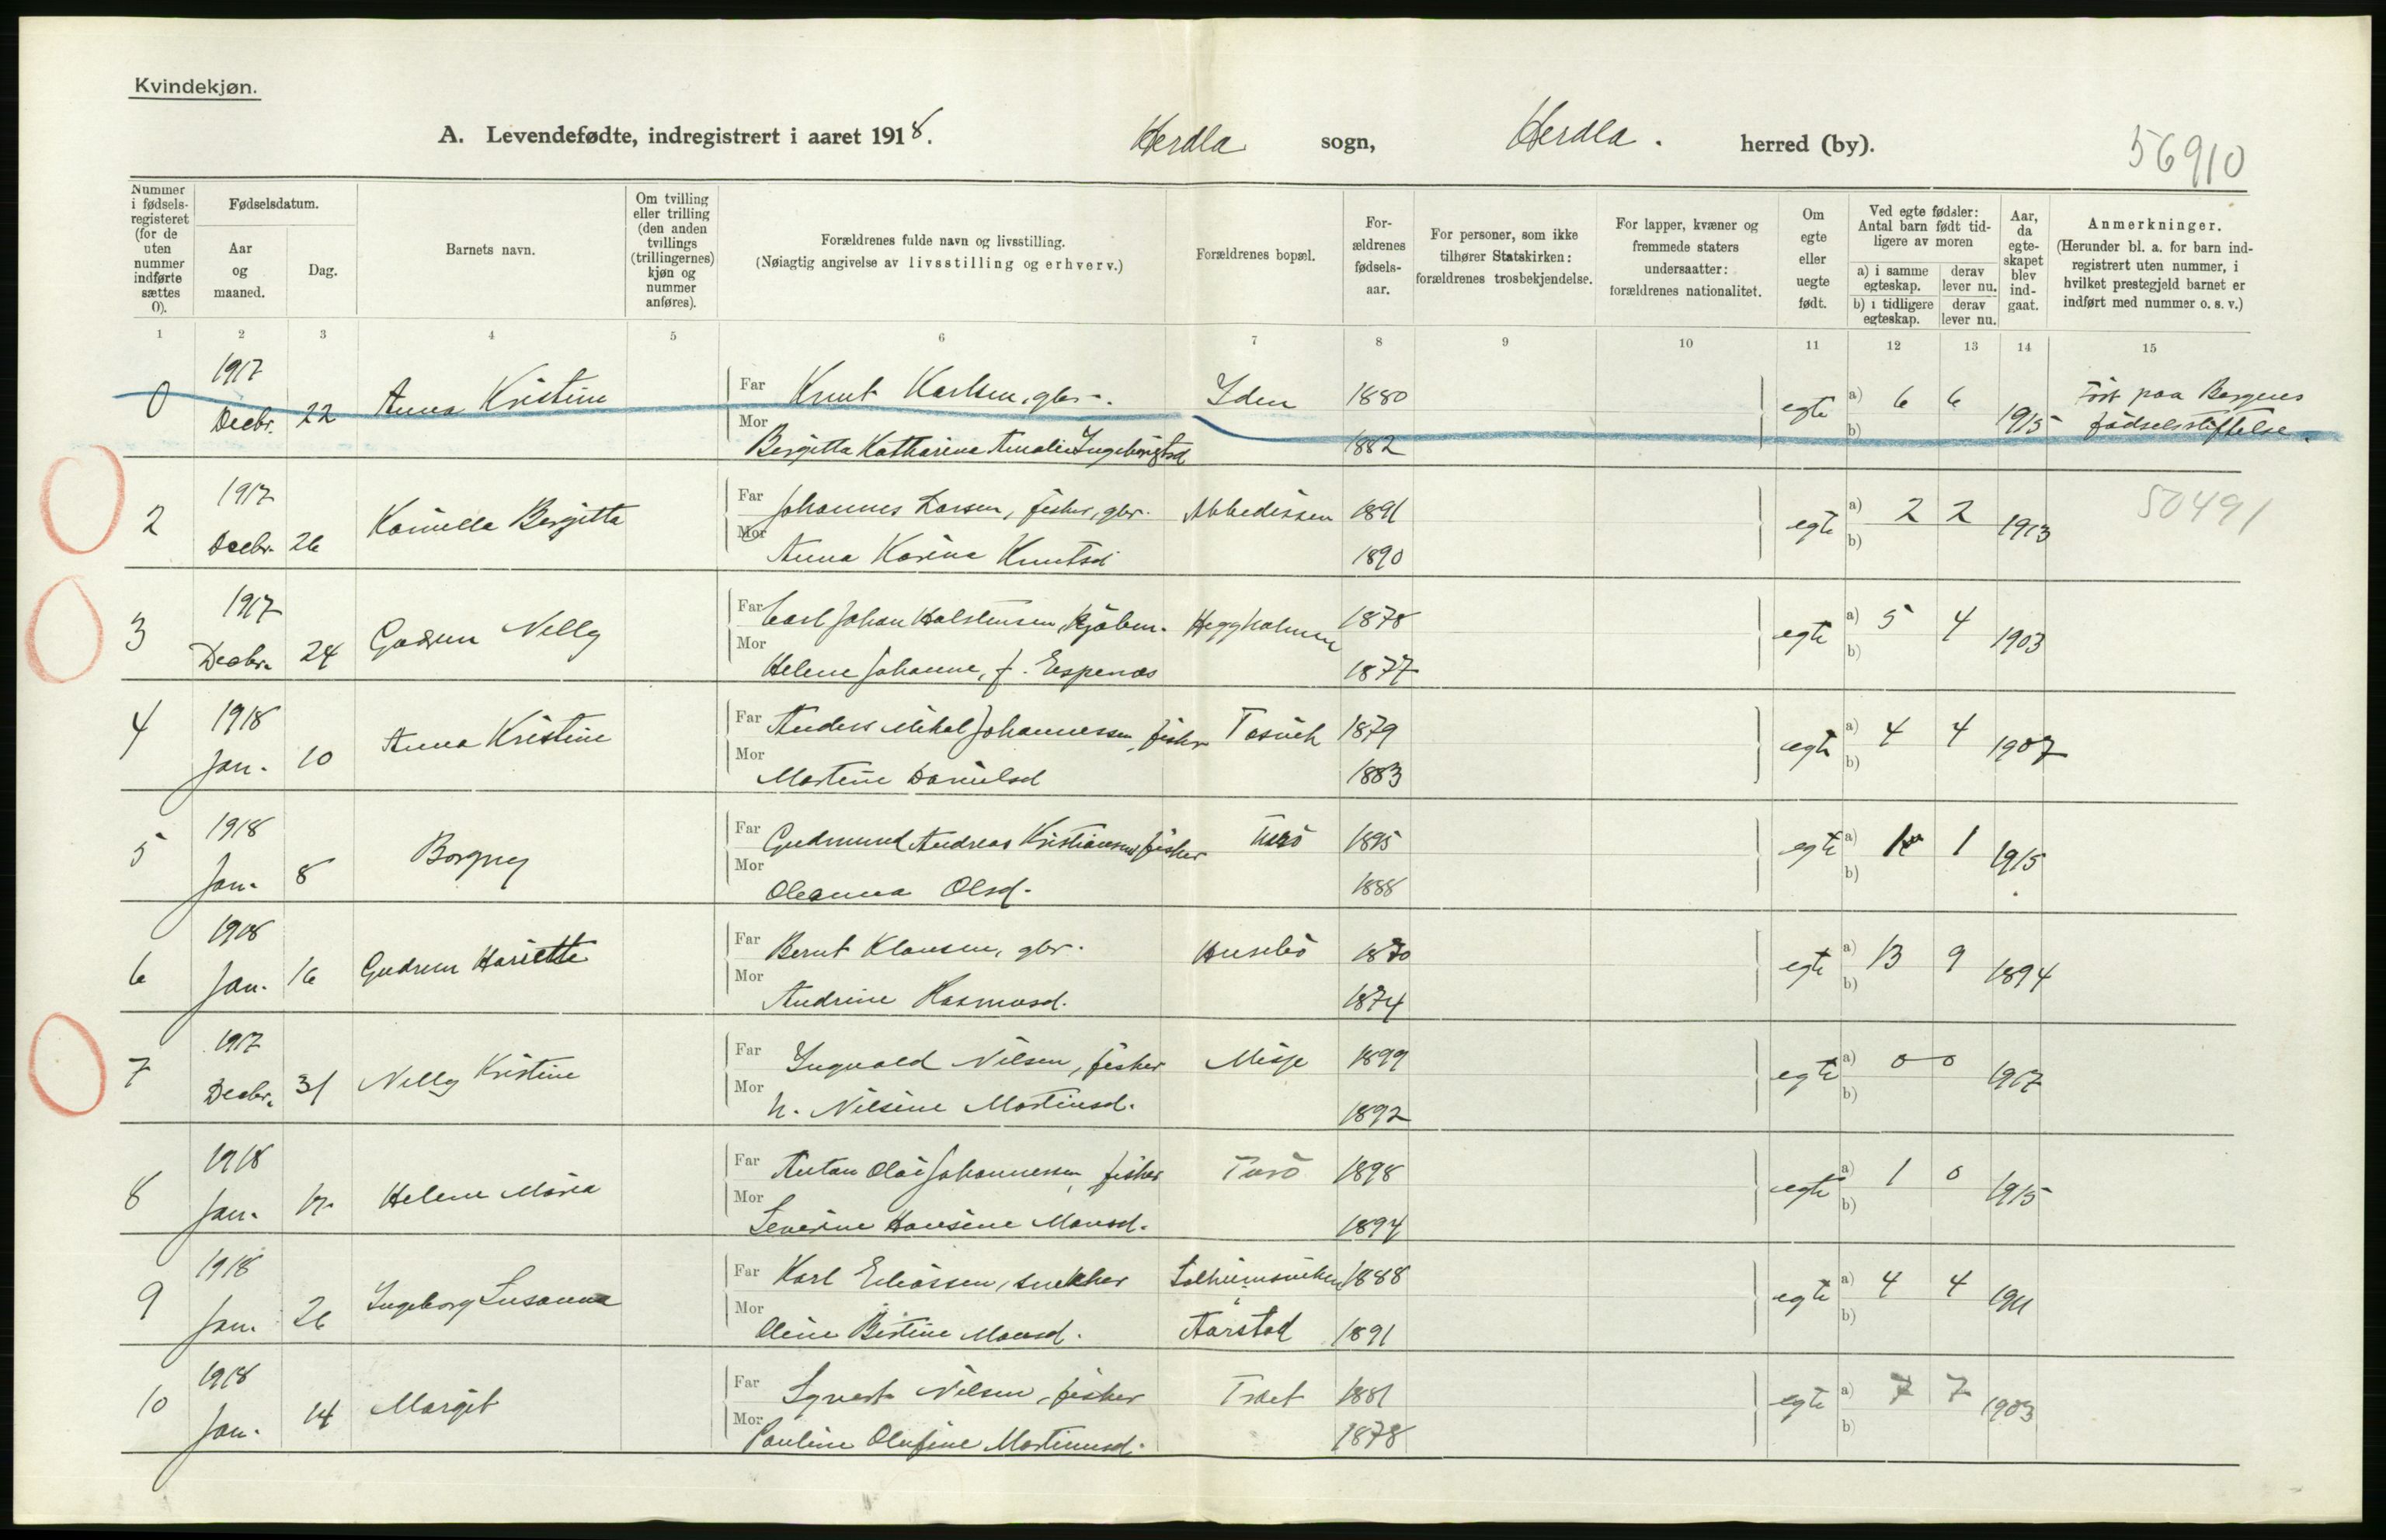 Kvindekjøn.
A. Levendefødte, indregistrert i aaret 1918. Herdla sogn, Herdla. herred (by). 56910
Nummer i fødsels-registeret (for de uten nummer indførte sættes 0).
Fødselsdatum.
Aar og maaned.
Dag.
Barnets navn.
Om tvilling eller trilling (den anden tvillings (trillingernes) kjøn og nummer anføres).
Forældrenes fulde navn og livsstilling.
(Nøiagtig angivelse av livsstilling og erhverv.)
Forældrenes bopæl.
For-ældrenes fødsels-aar.
For personer, som ikke tilhører Statskirken: forældrenes trosbekjendelse.
For lapper, kvæner og fremmede staters undersaatter: forældrenes nationalitet.
Om egte eller uegte født.
Ved egte fødsler: Antal barn født tid-ligere av moren
a) i samme egteskap. derav lever nu.
b) i tidligere egteskap. derav lever nu.
Aar, da egte-skapet blev ind-gaat.
Anmerkninger.
(Herunder bl. a. for barn ind-registrert uten nummer, i hvilket prestegjeld barnet er indført med nummer o. s. v.)
1 2 3 4 5 6 7 8 9 10 11 12 13 14 15
0 1917 Decbr. 22 Anna Kristine Far Knut Karlsen, gbr. 1880 egte a) 6 6 1915 Født paa Bergens
Mor Bergitta Katharina Amalie Ingebrigtsd 1882 b) fødselsstiftelse.
2 1917 Decbr. 26 Kamilla Bergitta Far Johannes Larsen, fisker, gbr. Abbedissen 1891 egte a) 2 2 1913 50491
Mor Anna Karina Knutsd 1890 b)
3 1917 Decbr. 24 Gudrun Nelly Far Carl Johan Halstensen, kjøbm. Heggholmen 1878 egte a) 5 4 1903
Mor Helene Johanne, f. Espenæs 1877 b)
4 1918 Jan. 10 Anna Kristine Far Anders Mikal Johannessen, fisker 1879 egte a) 4 4 1907
Mor Martine Danielsd 1883 b)
5 1918 Jan. 8 Borgny Far Gudmund Andreas Kristiansen, fisker Turø 1895 egte a) 1 1 1915
Mor Oleanna Olsd. 1888 b)
6 1918 Jan. 16 Gudrun Hariette Far Bernt Klausen, gbr. Husebø 1870 egte a) 13 9 1894
Mor Andrine Rasmusd. 1874 b)
7 1917 Decbr. 31 Nelly Kristine Far Ingvald Nilsen, fisker Misje 1899 egte a) 0 0 1917
Mor N. Nilsine Martinsd. 1892 b)
8 1918 Jan. 17. Helene Maria Far Anton Olai Johannessen, fisker Turø 1898 egte a) 1 0 1915
Mor Severine Hansine Monsd. 1894 b)
9 1918 Jan. 26 Ingeborg Susanna Far Karl Eliassen, snekker Solheimsviken 1888 egte a) 4 4 1911
Mor Oline Bertine Monsd. Aarstad 1891 b)
10 1918 Jan. 14 Margit Far Nilsen, fisker Træt 1881 egte a) 7 7 1903
Mor Pauline Olufine Martinusd. 1878 b)